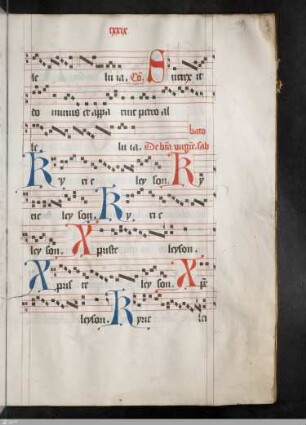 lxxix
le lu ia. Co. Surrex it
do minus et appa ruit petro al
le lu ia. De bta virgine. sab
bato
Ky ri e ley son. Ky
rie ley son. Ky ri e
ley son. Xpriste leyson.
Xpris te ley son. Xp̄e
leyson. Kyrie lei